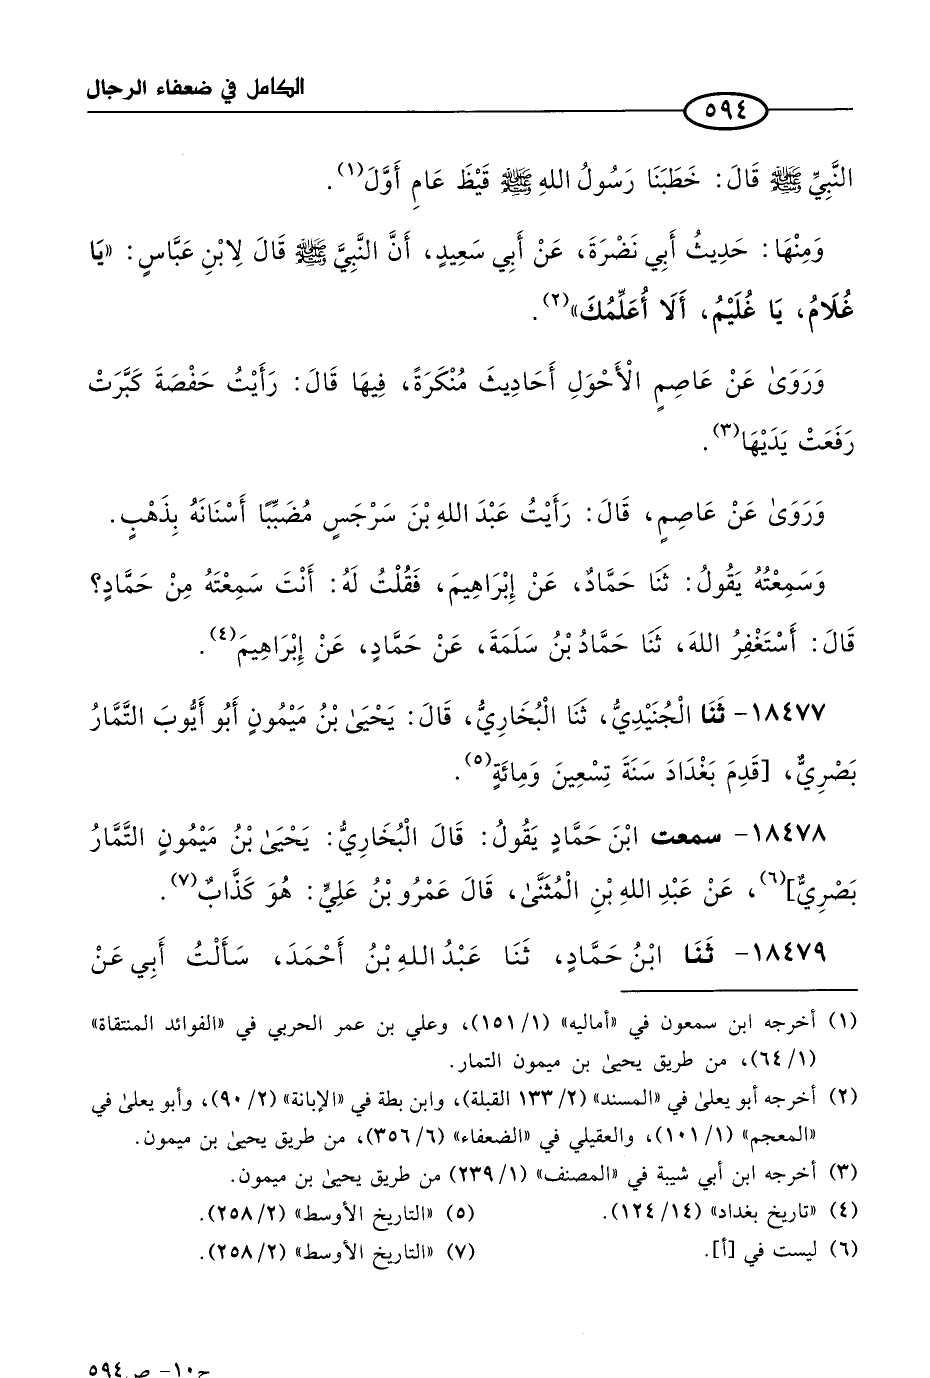 الكامل في ضعفاء الرجال
٥٩٤
النَّبِيِّ ﷺ قَالَ: خَطَبَنَا رَسُولُ اللهِ ﷺ قَيْظَ عَامِ أَوَّلَ(١).
وَمِنْهَا: حَدِيثُ أَبِي نَضْرَةَ، عَنْ أَبِي سَعِيدٍ، أَنَّ النَّبِيَّ ﷺ قَالَ لِابْنِ عَبَّاسٍ: «يَا
غُلَامُ، يَا غُلَيْمُ، أَلَا أُعَلِّمُكَ»(٢).
وَرَوَىٰ عَنْ عَاصِمٍ الْأَحْوَلِ أَحَادِيثَ مُنْكَرَةً، فِيهَا قَالَ: رَأَيْتُ حَفْصَةَ كَبَّرَتْ
رَفَعَتْ يَدَيْهَا(٣).
وَرَوَىٰ عَنْ عَاصِمٍ، قَالَ: رَأَيْتُ عَبْدَ اللهِ بْنَ سَرْجَسٍ مُضَبِّبًا أَسْنَانَهُ بِذَهْبٍ.
وَسَمِعْتُهُ يَقُولُ: ثَنَا حَمَّادٌ، عَنْ إِبْرَاهِيمَ، فَقُلْتُ لَهُ: أَنْتَ سَمِعْتَهُ مِنْ حَمَّادٍ؟
قَالَ: أَسْتَغْفِرُ اللهَ، ثَنَا حَمَّادُ بْنُ سَلَمَةَ، عَنْ حَمَّادٍ، عَنْ إِبْرَاهِيمَ(٤).
١٨٤٧٧- ثَنَا الْجُنَيْدِيُّ، ثَنَا الْبُخَارِيُّ، قَالَ: يَحْيَىٰ بْنُ مَيْمُونٍ أَبُو أَيُّوبَ التَّمَّارُ
بَصْرِيٌّ، [قَدِمَ بَغْدَادَ سَنَةَ تِسْعِينَ وَمِائَةٍ(٥).
١٨٤٧٨- سمعت ابْنَ حَمَّادٍ يَقُولُ: قَالَ الْبُخَارِيُّ: يَحْيَىٰ بْنُ مَيْمُونٍ التَّمَّارُ
بَصْرِيٌّ](٦)، عَنْ عَبْدِ اللهِ بْنِ الْمُثَنَّىٰ، قَالَ عَمْرُو بْنُ عَلِيٍّ: هُوَ كَذَّابٌ(٧).
١٨٤٧٩- ثَنَا ابْنُ حَمَّادٍ، ثَنَا عَبْدُ اللهِ بْنُ أَحْمَدَ، سَأَلْتُ أَبِي عَنْ
(١) أخرجه ابن سمعون في «أماليه» (١/ ١٥١)، وعلي بن عمر الحربي في «الفوائد المنتقاة»
(١/ ٦٤)، من طريق يحيىٰ بن ميمون التمار.
(٢) أخرجه أبو يعلىٰ في «المسند» (٢/ ١٣٣ القبلة)، وابن بطة في «الإبانة» (٢/ ٩٠)، وأبو يعلىٰ في
«المعجم» (١/ ١٠١)، والعقيلي في «الضعفاء» (٦/ ٣٥٦)، من طريق يحيىٰ بن ميمون.
(٣) أخرجه ابن أبي شيبة في «المصنف» (١/ ٢٣٩) من طريق يحيىٰ بن ميمون.
(٤) «تاريخ بغداد» (١٤/ ١٢٤). (٥) «التاريخ الأوسط» (٢/ ٢٥٨).
(٦) ليست في [أ]. (٧) «التاريخ الأوسط» (٢/ ٢٥٨).
ج١٠- ص٥٩٤